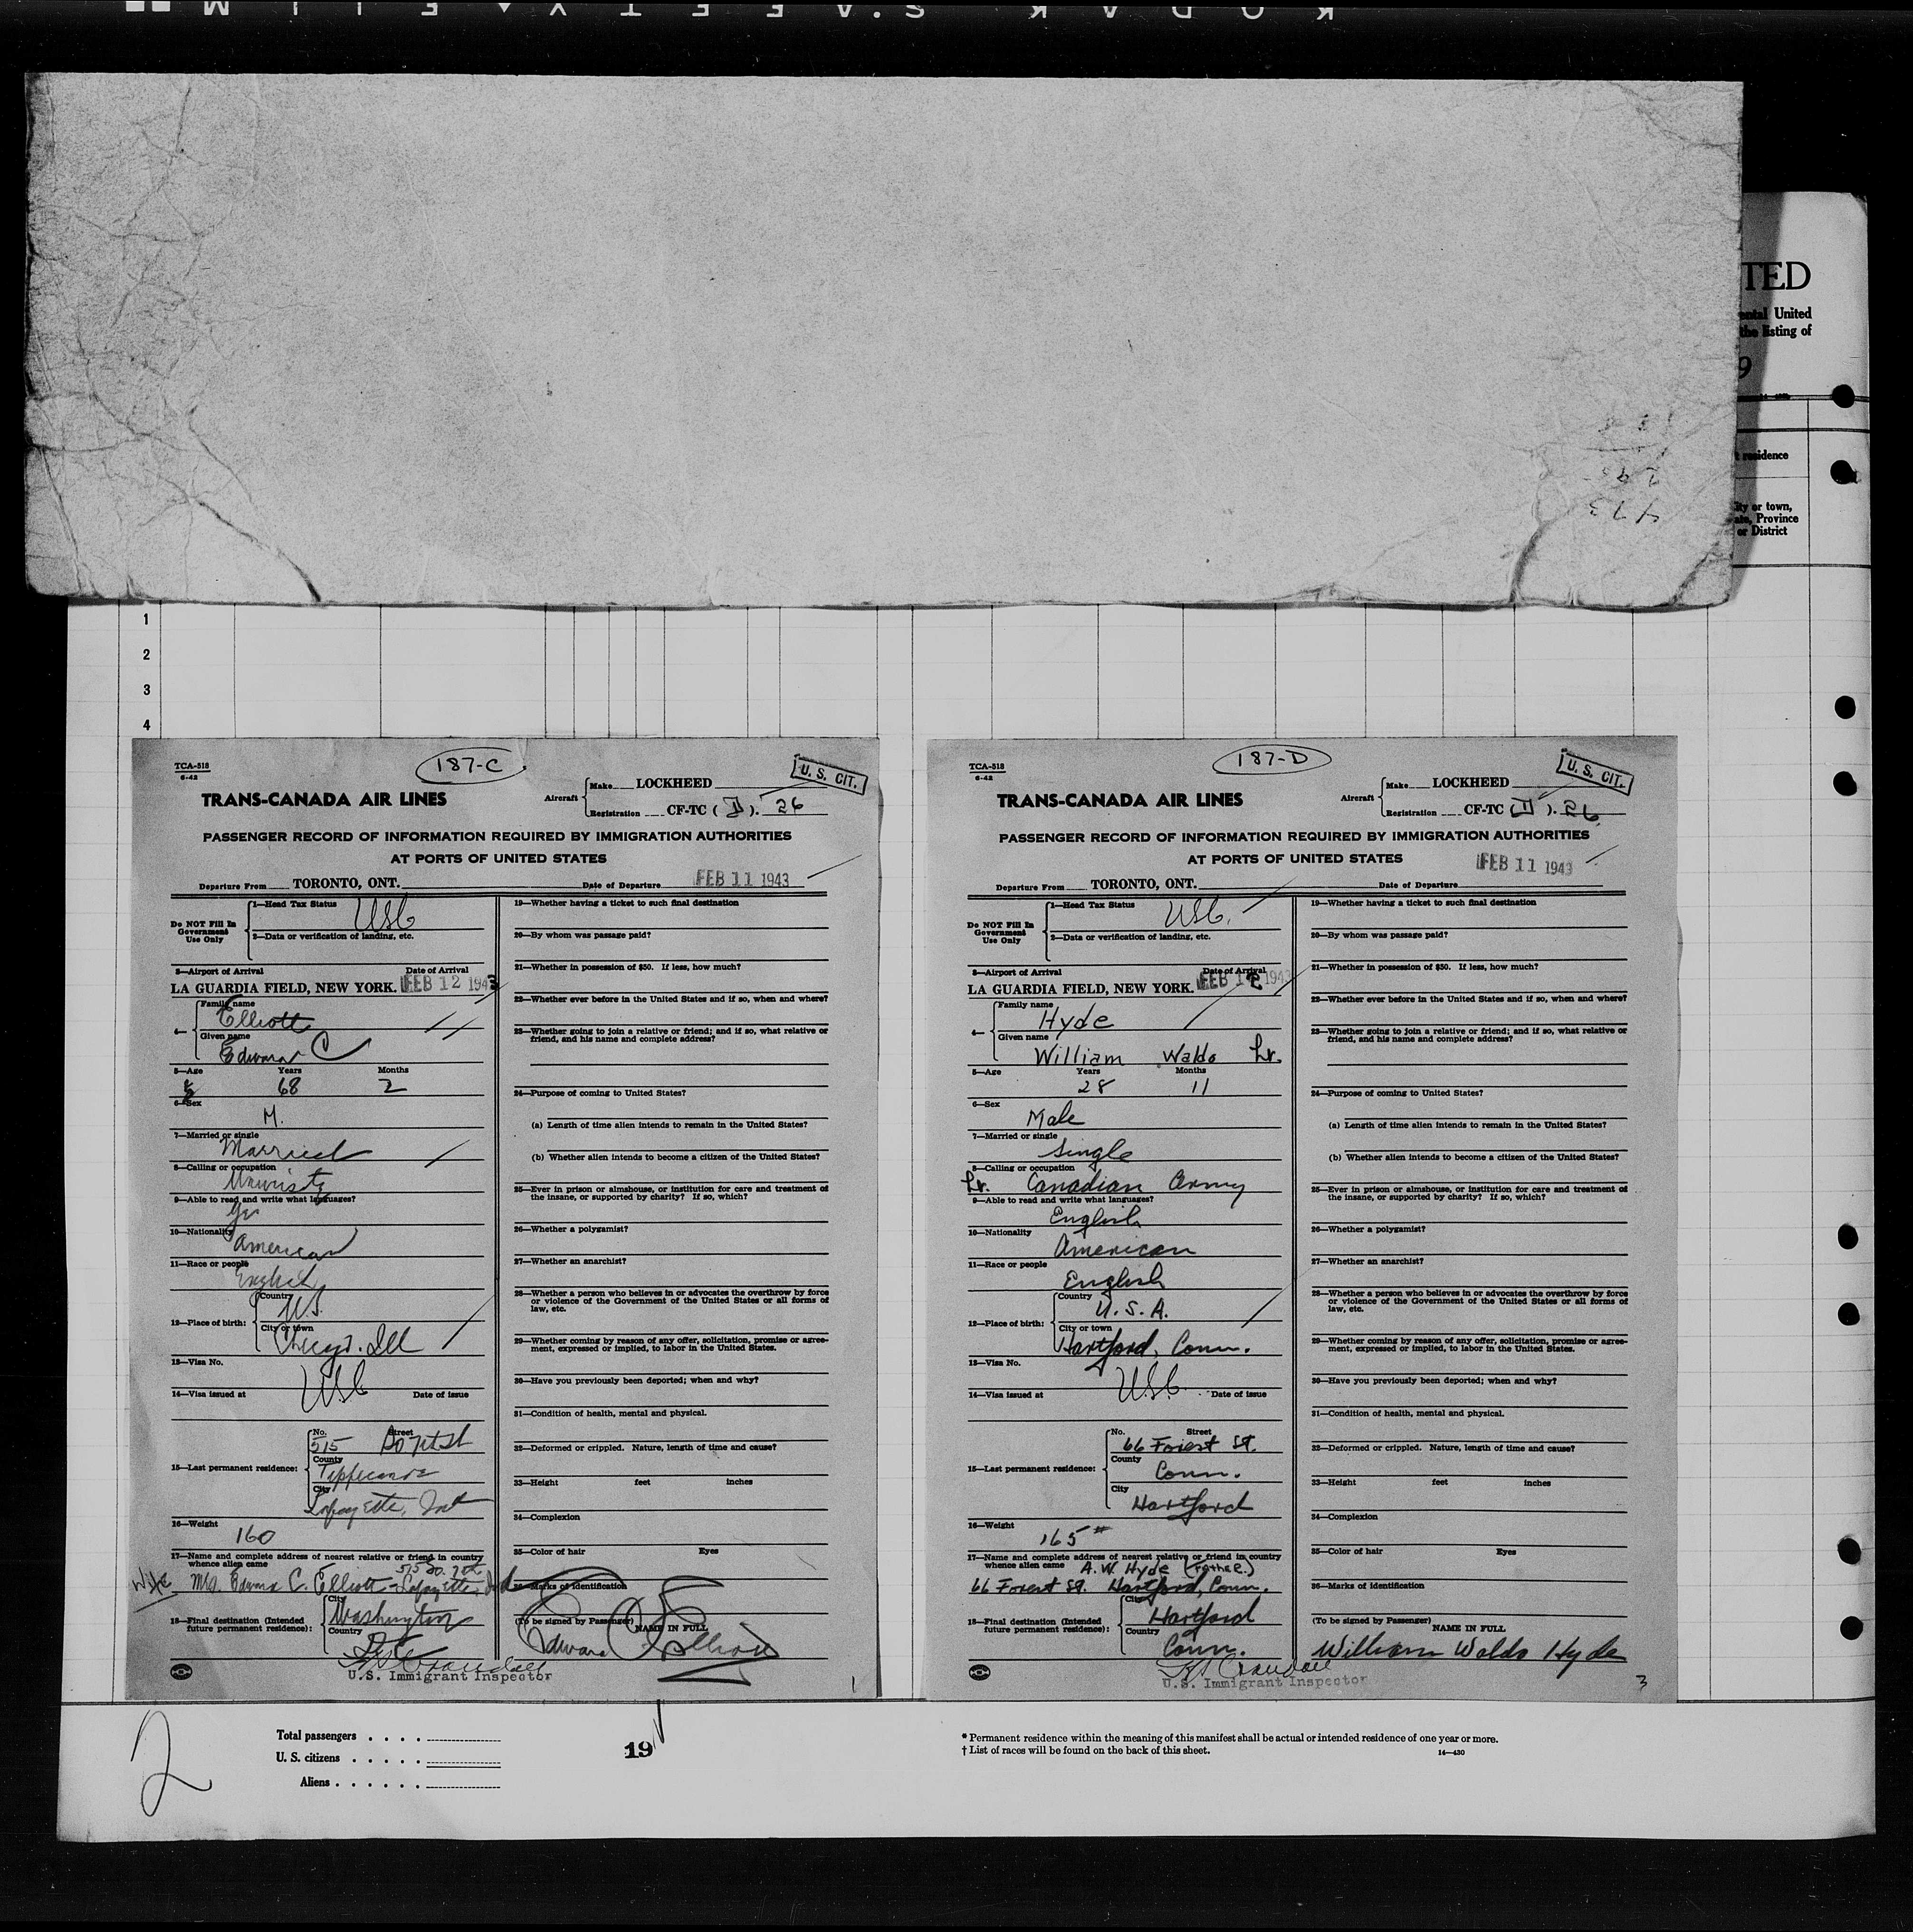 KODAK SAFETY FILM
TED
ental United
the listing of
9
residence
City or town,
State, Province
or District
1
2
3
4
TCA-518
6-42
187-C
U. S. CIT.
Aircraft
Make LOCKHEED
Registration CF-TC ( ). 26
TRANS-CANADA AIR LINES
PASSENGER RECORD OF INFORMATION REQUIRED BY IMMIGRATION AUTHORITIES
AT PORTS OF UNITED STATES
Departure From TORONTO, ONT. Date of Departure FEB 11 1943
Do NOT Fill In
Government
Use Only
1—Head Tax Status USC
2—Data or verification of landing, etc.
3—Airport of Arrival Date of Arrival
LA GUARDIA FIELD, NEW YORK. FEB 12 1943
4— Family name
Elliott
Given name
Edward C
5—Age Years Months
68 2
6—Sex
M.
7—Married or single
Married
8—Calling or occupation
University
9—Able to read and write what languages?
Yes
10—Nationality
American
11—Race or people
English
12—Place of birth:
Country
U.S.
City or town
Chicago. Ill
13—Visa No.
USC
14—Visa issued at Date of issue
15—Last permanent residence:
No. Street
515 So 7th St
County
Tippecanoe
City
Lafayette, Ind
16—Weight
160
17—Name and complete address of nearest relative or friend in country
whence alien came
515 So. 7th
Wife Mrs. Edward C. Elliott - Lafayette, Ind
18—Final destination (Intended
future permanent residence):
City
Washington
Country
D.C.
Crandall
U.S. Immigrant Inspector
19—Whether having a ticket to such final destination
20—By whom was passage paid?
21—Whether in possession of $50. If less, how much?
22—Whether ever before in the United States and if so, when and where?
23—Whether going to join a relative or friend; and if so, what relative or
friend, and his name and complete address?
24—Purpose of coming to United States?
(a) Length of time alien intends to remain in the United States?
(b) Whether alien intends to become a citizen of the United States?
25—Ever in prison or almshouse, or institution for care and treatment of
the insane, or supported by charity? If so, which?
26—Whether a polygamist?
27—Whether an anarchist?
28—Whether a person who believes in or advocates the overthrow by force
or violence of the Government of the United States or all forms of
law, etc.
29—Whether coming by reason of any offer, solicitation, promise or agree-
ment, expressed or implied, to labor in the United States.
30—Have you previously been deported; when and why?
31—Condition of health, mental and physical.
32—Deformed or crippled. Nature, length of time and cause?
33—Height feet inches
34—Complexion
35—Color of hair Eyes
36—Marks of identification
(To be signed by Passenger)
NAME IN FULL
Edward C Elliott
1
TCA-518
6-42
187-D
U. S. CIT.
Aircraft
Make LOCKHEED
Registration CF-TC ( ). 26
TRANS-CANADA AIR LINES
PASSENGER RECORD OF INFORMATION REQUIRED BY IMMIGRATION AUTHORITIES
AT PORTS OF UNITED STATES
Departure From TORONTO, ONT. Date of Departure FEB 11 1943
Do NOT Fill In
Government
Use Only
1—Head Tax Status USC.
2—Data or verification of landing, etc.
3—Airport of Arrival Date of Arrival
LA GUARDIA FIELD, NEW YORK. FEB 12 1943
4— Family name
Hyde
Given name
William Waldo Lt.
5—Age Years Months
28 11
6—Sex
Male
7—Married or single
Single
8—Calling or occupation
Lt. Canadian Army
9—Able to read and write what languages?
English
10—Nationality
American
11—Race or people
English
12—Place of birth:
Country
U.S.A.
City or town
Hartford, Conn.
13—Visa No.
USC
14—Visa issued at Date of issue
15—Last permanent residence:
No. Street
66 Forest St.
County
Conn.
City
Hartford
16—Weight
165#
17—Name and complete address of nearest relative or friend in country
whence alien came
A. W. Hyde (Father)
66 Forest St. Hartford, Conn.
18—Final destination (Intended
future permanent residence):
City
Hartford
Country
Conn.
Crandall
U.S. Immigrant Inspector
19—Whether having a ticket to such final destination
20—By whom was passage paid?
21—Whether in possession of $50. If less, how much?
22—Whether ever before in the United States and if so, when and where?
23—Whether going to join a relative or friend; and if so, what relative or
friend, and his name and complete address?
24—Purpose of coming to United States?
(a) Length of time alien intends to remain in the United States?
(b) Whether alien intends to become a citizen of the United States?
25—Ever in prison or almshouse, or institution for care and treatment of
the insane, or supported by charity? If so, which?
26—Whether a polygamist?
27—Whether an anarchist?
28—Whether a person who believes in or advocates the overthrow by force
or violence of the Government of the United States or all forms of
law, etc.
29—Whether coming by reason of any offer, solicitation, promise or agree-
ment, expressed or implied, to labor in the United States.
30—Have you previously been deported; when and why?
31—Condition of health, mental and physical.
32—Deformed or crippled. Nature, length of time and cause?
33—Height feet inches
34—Complexion
35—Color of hair Eyes
36—Marks of identification
(To be signed by Passenger)
NAME IN FULL
William Waldo Hyde
3
2
Total passengers . . . .
U. S. citizens . . . . .
Aliens . . . . . .
19
* Permanent residence within the meaning of this manifest shall be actual or intended residence of one year or more.
† List of races will be found on the back of this sheet. 14—430